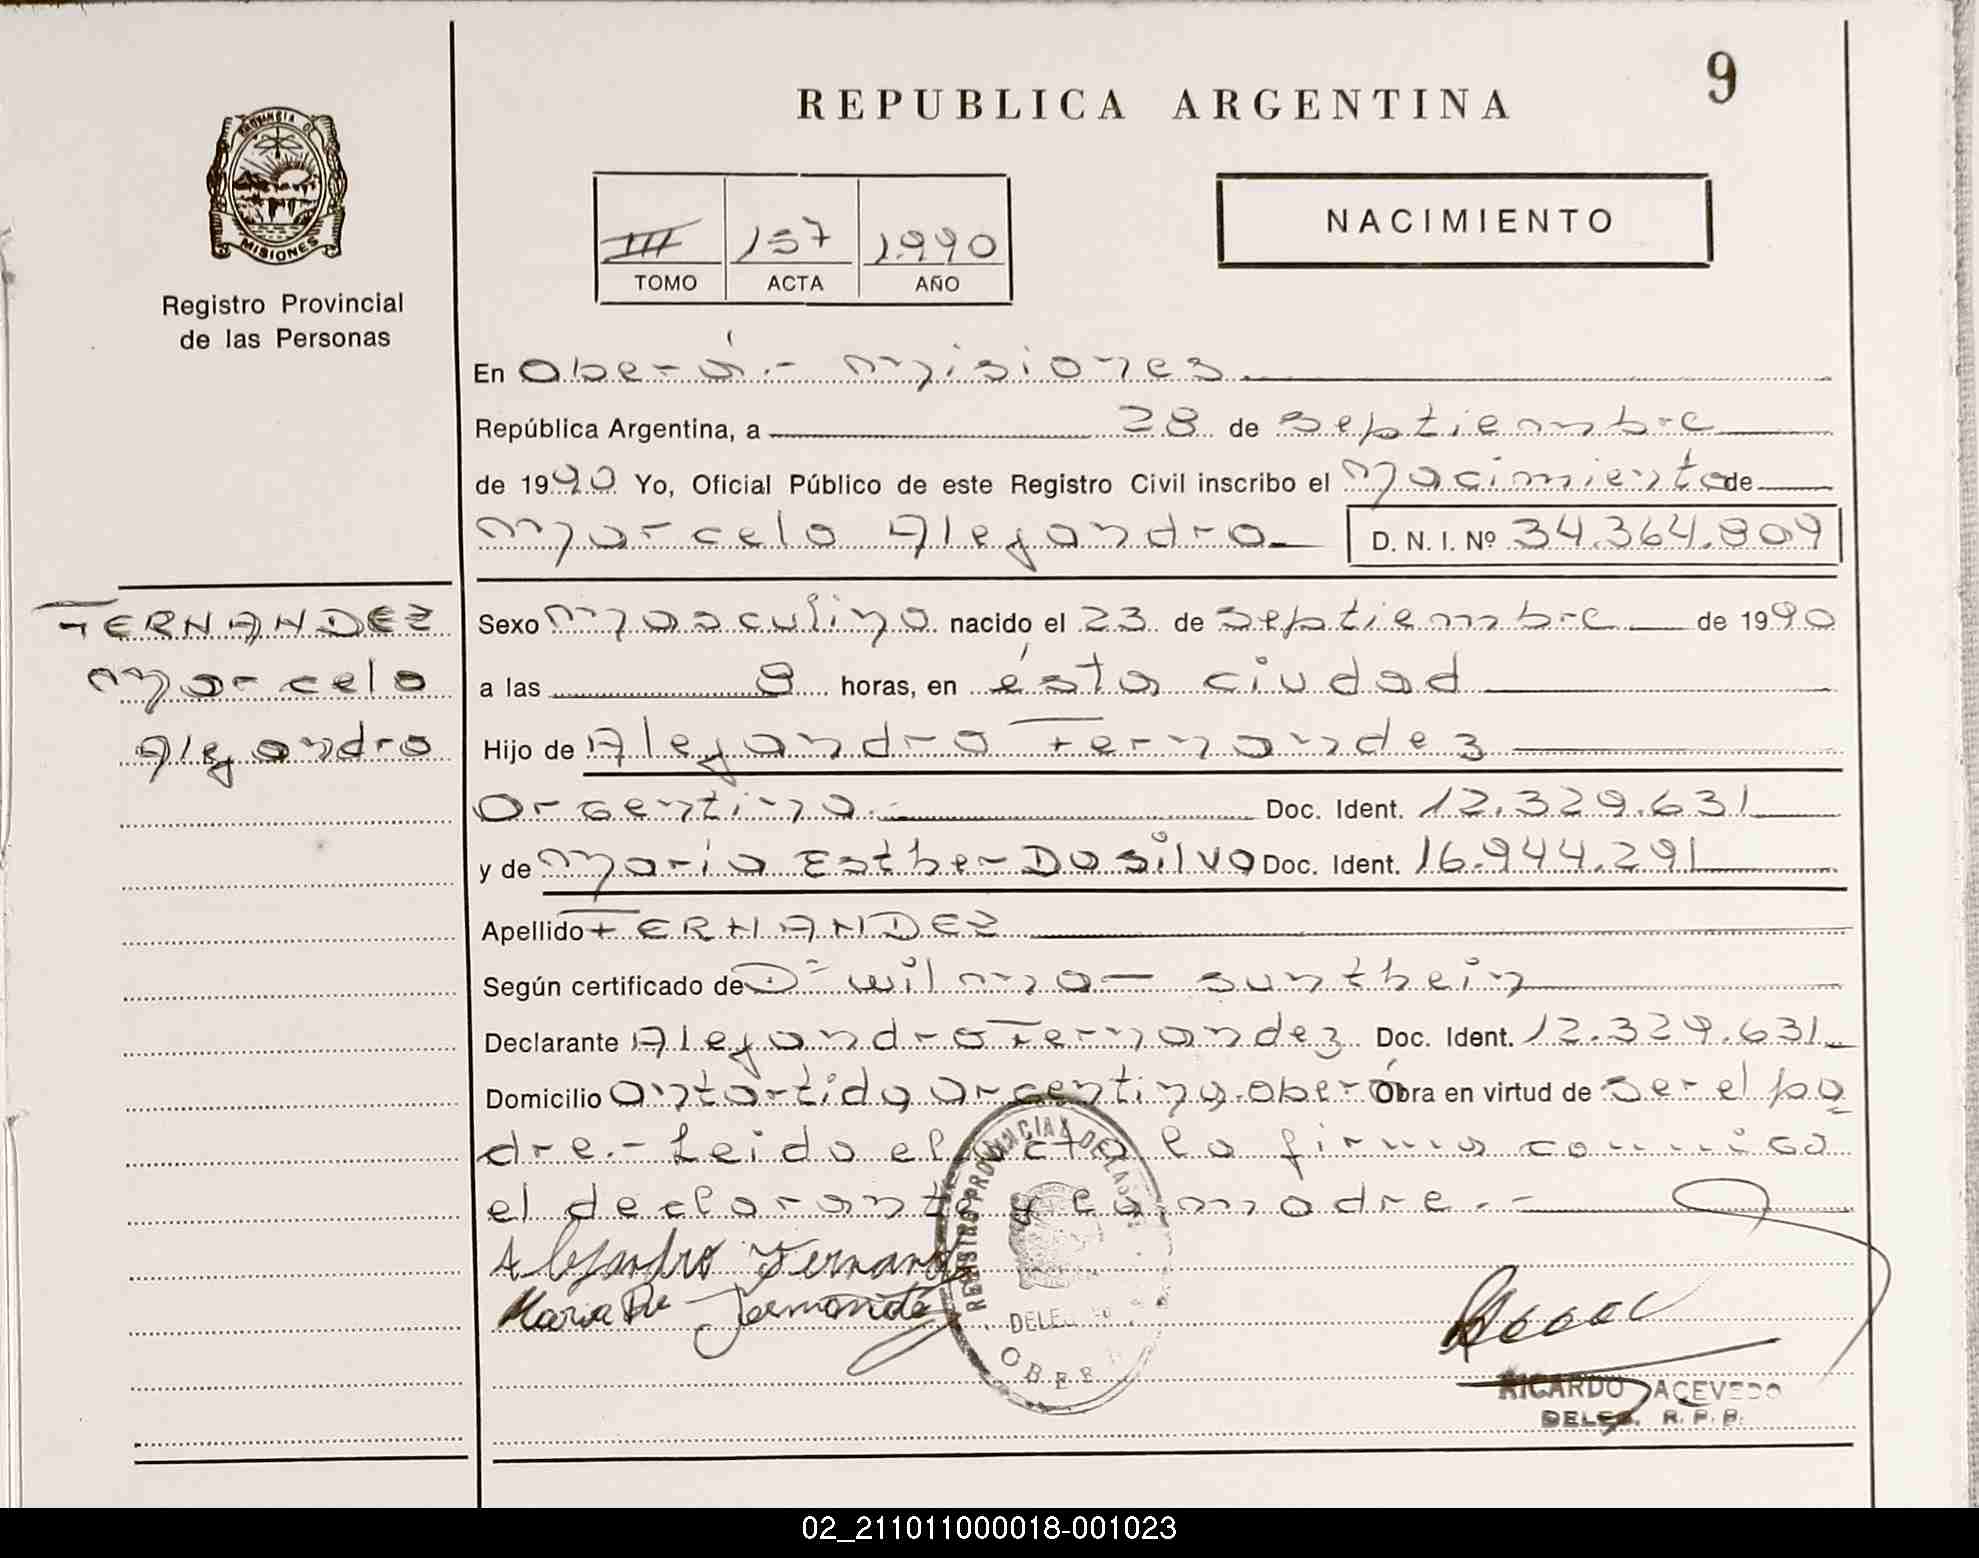 9
REPUBLICA ARGENTINA
PROVINCIA D
MISIONES
Registro Provincial
de las Personas
III 157 1990
TOMO ACTA AÑO
NACIMIENTO
En Oberá.- Misiones.
República Argentina, a 28 de septiembre
de 1990 Yo, Oficial Público de este Registro Civil inscribo el Nacimiento de
Marcelo Alejandro D. N. I. Nº 34.364.809
FERNANDEZ
Marcelo
Alejandro
Sexo Masculino nacido el 23 de septiembre de 1990
a las 8 horas, en ésta ciudad
Hijo de Alejandro Fernandez
Argentino.- Doc. Ident. 12.329.631
y de Maria Esther Da Silva Doc. Ident. 16.944.291
Apellido FERNANDEZ
Según certificado de Dº Wilma Sunthein
Declarante Alejandro Fernandez Doc. Ident. 12.329.631
Domicilio antartida argentina, oberá Obra en virtud de ser el pa
dre.- Leida el acta la firma conmigo
el declarante y la madre.-
Alejandro Fernand
Maria De
REGISTRO PROVINCIAL DE LAS
OBER
RICARDO ACEVEDO
DELEG. R. P. P.
02_211011000018-001023